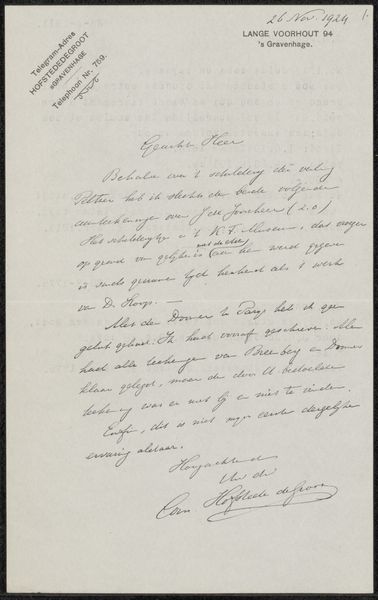 26 Nov. 1924
1.
Telegram-Adres
HOFSTEDEDEGROOT
sGRAVENHAGE
Telephoon Nr. 769.
LANGE VOORHOUT 94
's Gravenhage.
Geachte Heer
Behalve over 't schilderij der veiling
heb ik slechts de beide volgende
aanteekeningen over J de
Het schilderijtje in 't K. F. Museum, dat vroeger
op grond van gelijkenis met de aan hem werd gegeven
is sinds geruimen tijd bekend als 't werk
van D.
Met de Doomer te Parijs heb ik geen
geluk gehad. Ik had vooraf geschreven. Men
had alle teekeningen van Breenberg en Doomer
klaar gelegd, maar de door U bedoelde
teekening was er niet bij en niet te vinden.
Enfin, dit is niet mijn eerste dergelijke
ervaring aldaar.
Hoogachtend
Uw dr
Corn Hofstede de Groot